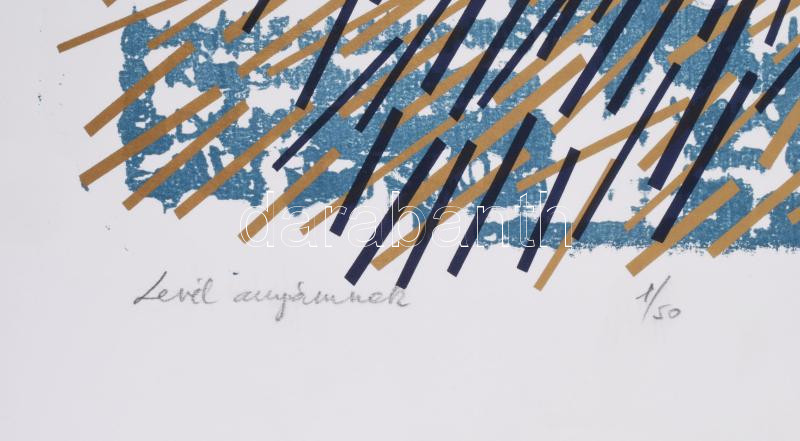 darabanth
Levél anyámnak 1/50